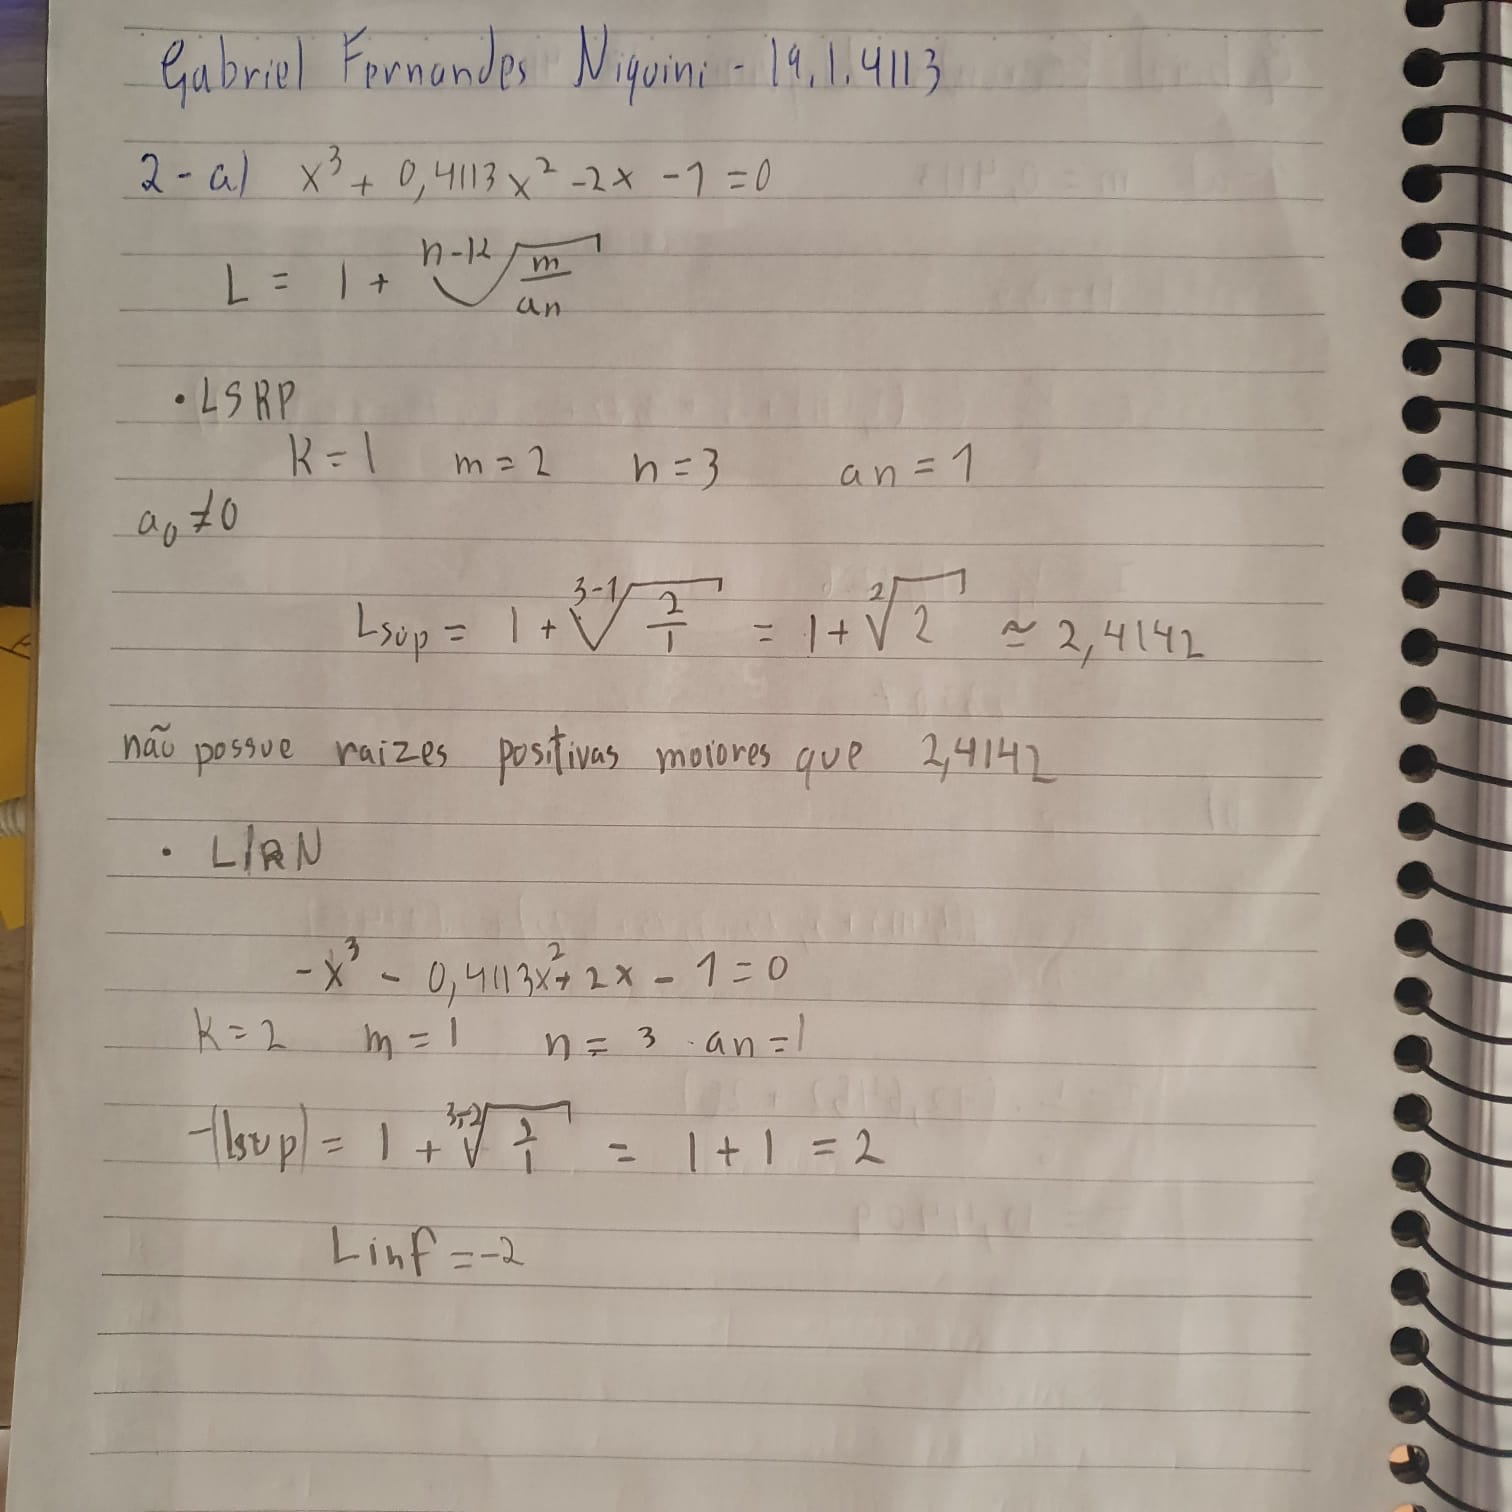 Gabriel Fernandes Niquini - 19.1.4113
2-a) x³ + 0,4113x² -2x -1 = 0
L = 1 + ⁿ⁻ᵏ√(m/an)
• LSRP
K=1 m=2 n=3 an=1
a₀≠0
Lsup = 1 + ³⁻¹√(2/1) = 1 + ²√2 ≃ 2,4142
não possue raizes positivas maiores que 2,4142
• LIRN
-x³ - 0,4113x² + 2x - 1 = 0
K=2 m=1 n=3 an=1
-|lsup| = 1 + ³⁻²√(1/1) = 1+1 = 2
Linf = -2